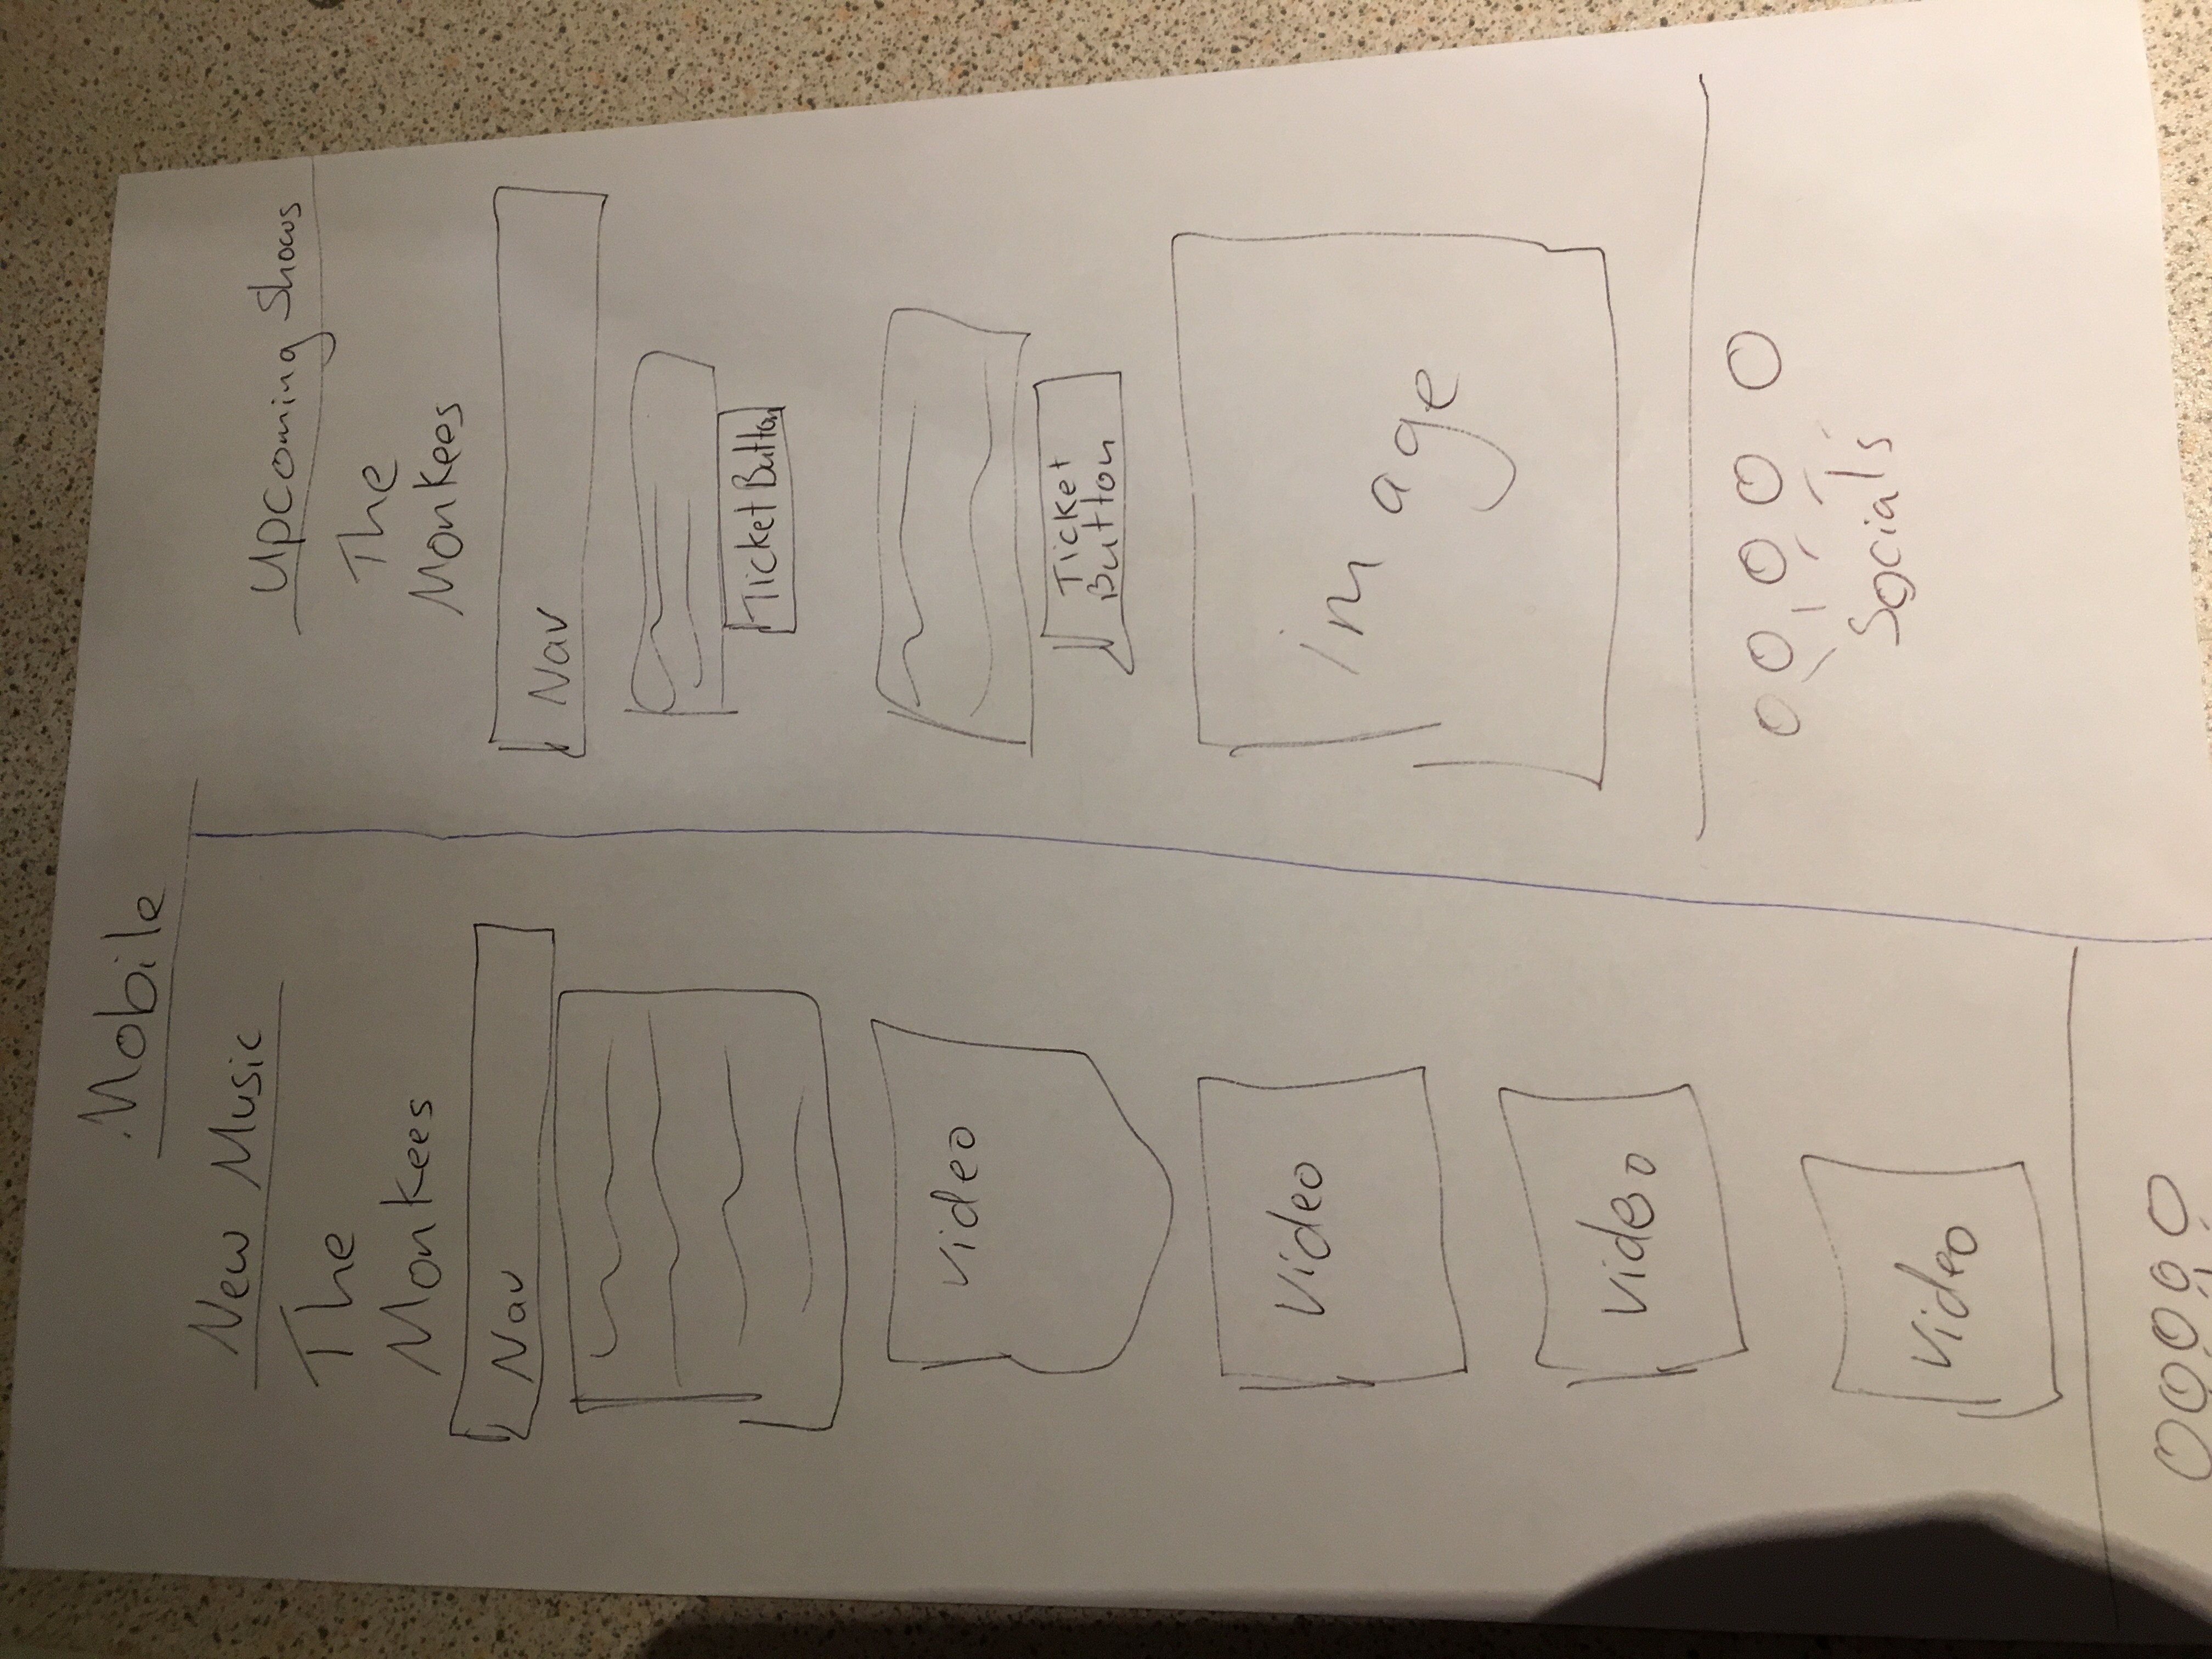 Mobile
New Music
The
Monkees
Nav
Video
Video
Video
Video
Upcoming Shows
The
Monkees
Nav
Ticket Button
Ticket
Button
image
Socials